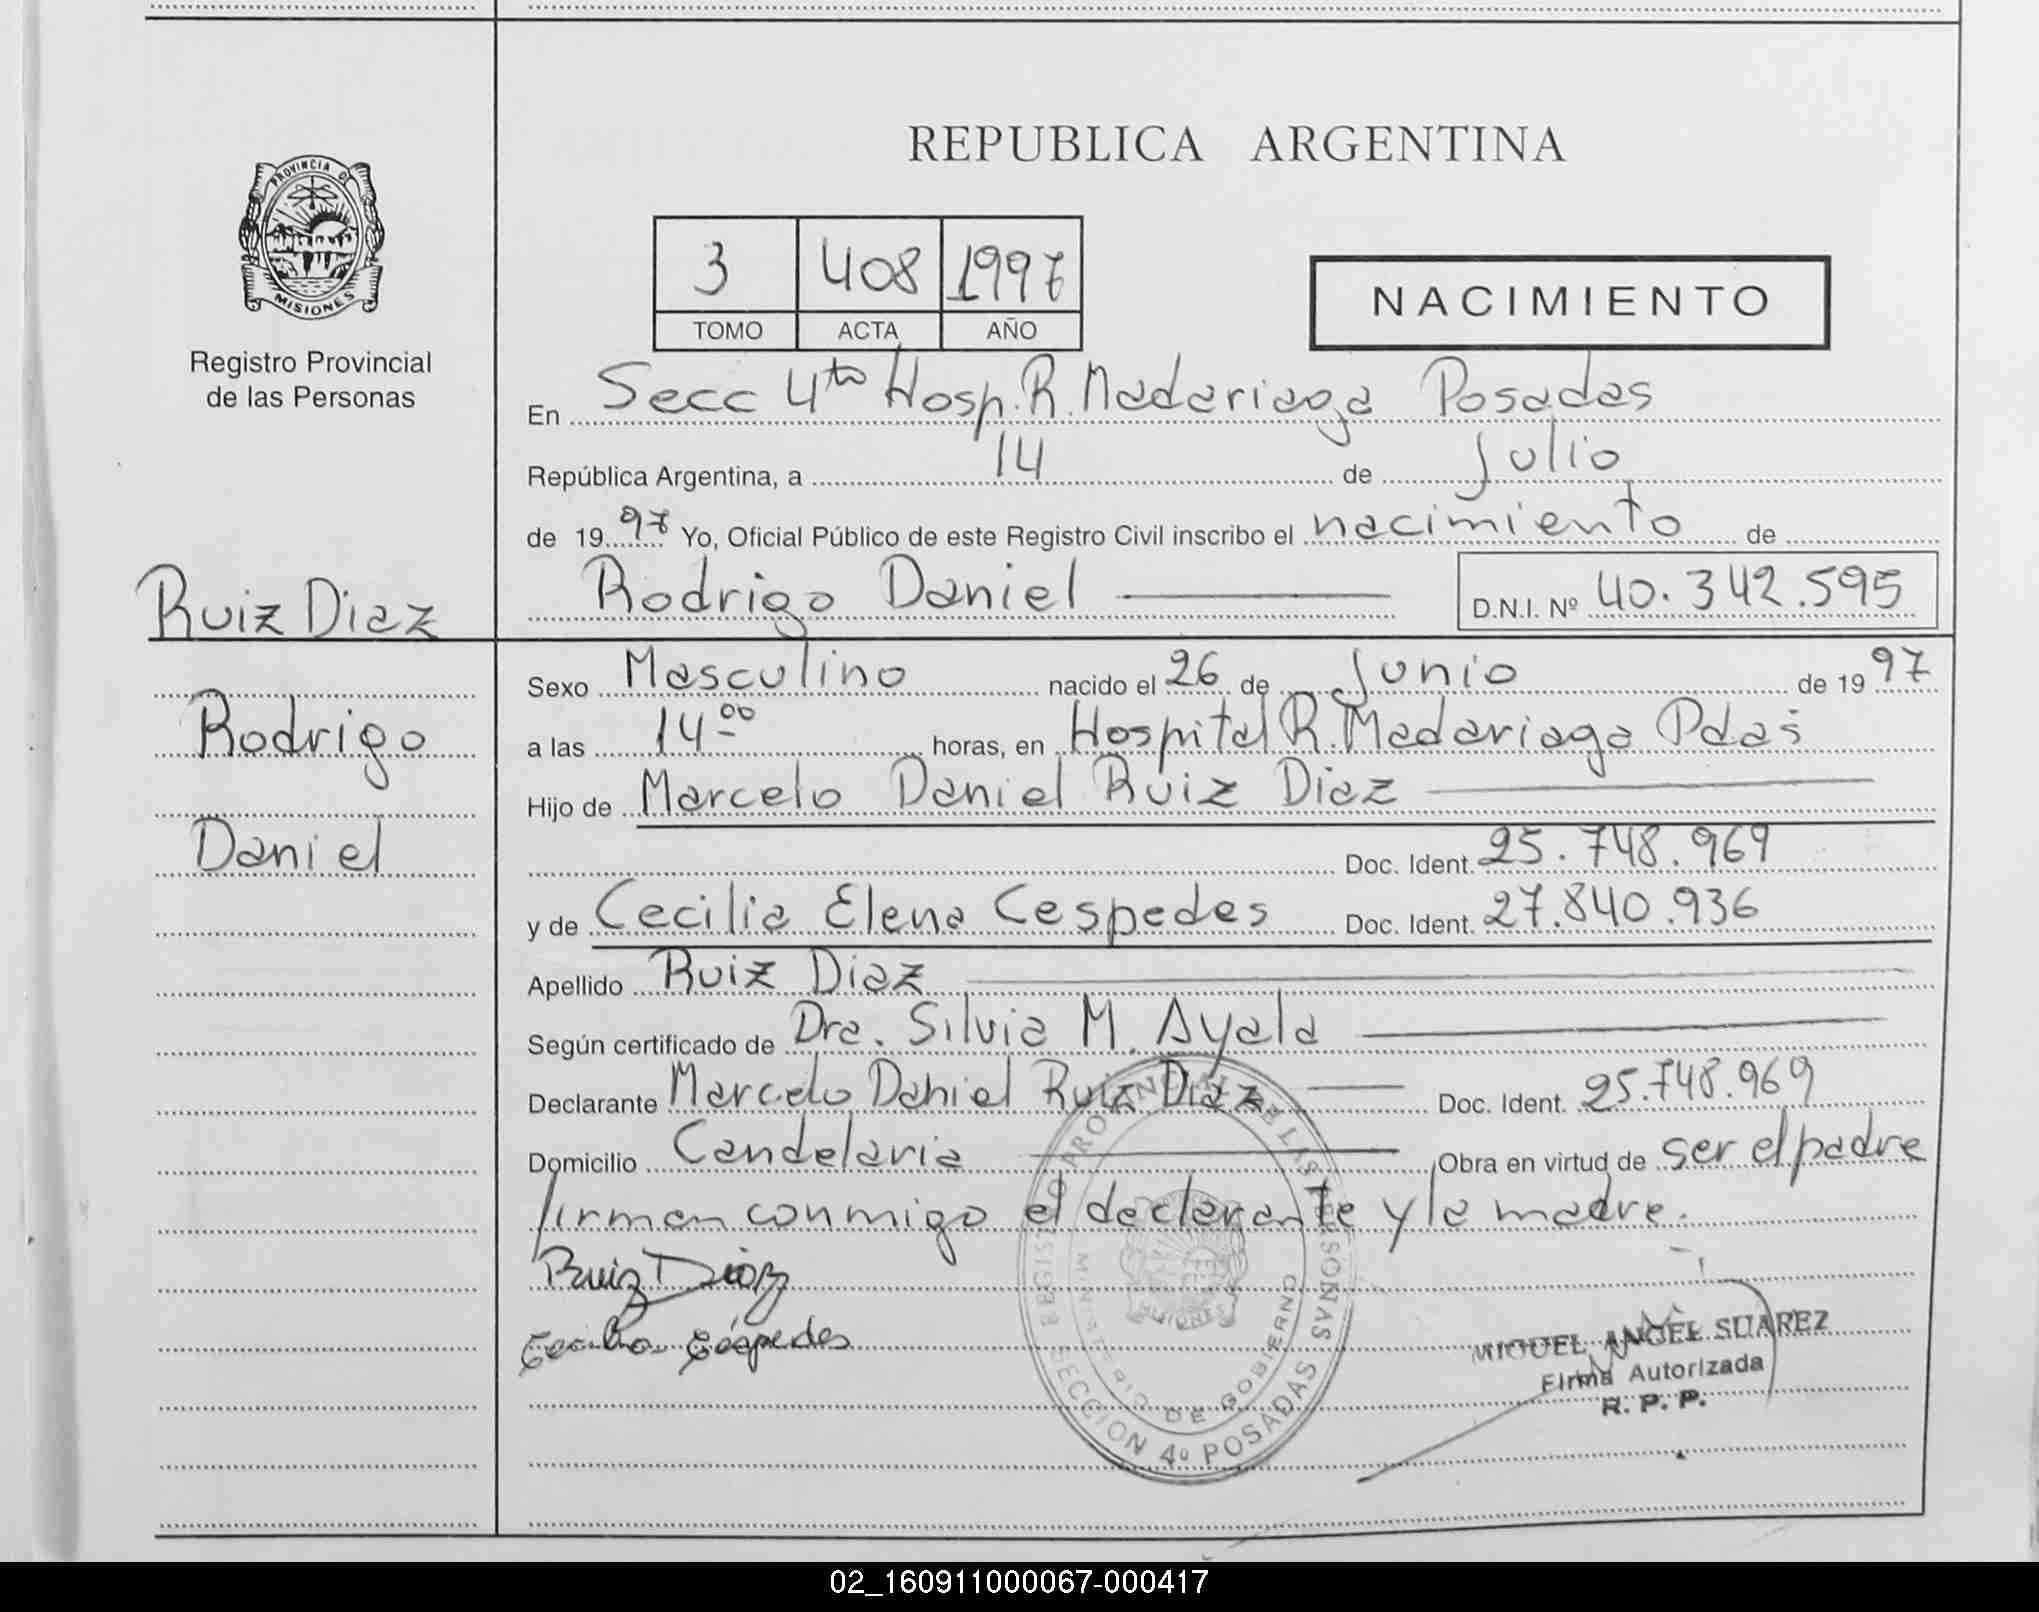 REPUBLICA ARGENTINA
PROVINCIA DE
MISIONES
Registro Provincial
de las Personas
3 408 1997
TOMO ACTA AÑO
NACIMIENTO
En Secc 4ta Hosp. R. Madariaga Posadas
República Argentina, a 14 de Julio
de 1997 Yo, Oficial Público de este Registro Civil inscribo el nacimiento de
Rodrigo Daniel
D.N.I. Nº 40.342.595
Ruiz Diaz
Rodrigo
Daniel
Sexo Masculino nacido el 26 de Junio de 1997
a las 14 00 horas, en Hospital R. Madariaga Pdas
Hijo de Marcelo Daniel Ruiz Diaz
Doc. Ident. 25.748.969
y de Cecilia Elena Cespedes Doc. Ident. 27.840.936
Apellido Ruiz Diaz
Según certificado de Dra. Silvia M. Ayala
Declarante Marcelo Daniel Ruiz Diaz Doc. Ident. 25.748.969
Domicilio Candelaria Obra en virtud de ser el padre
firman conmigo el declarante y la madre.
Ruiz Diaz
Cecilia Céspedes
REGISTRO PROVINCIAL DE LAS PERSONAS
MINISTERIO DE GOBIERNO
MISIONES
SECCION 4º POSADAS
MIGUEL ANGEL SUAREZ
Firma Autorizada
R. P. P.
02_160911000067-000417